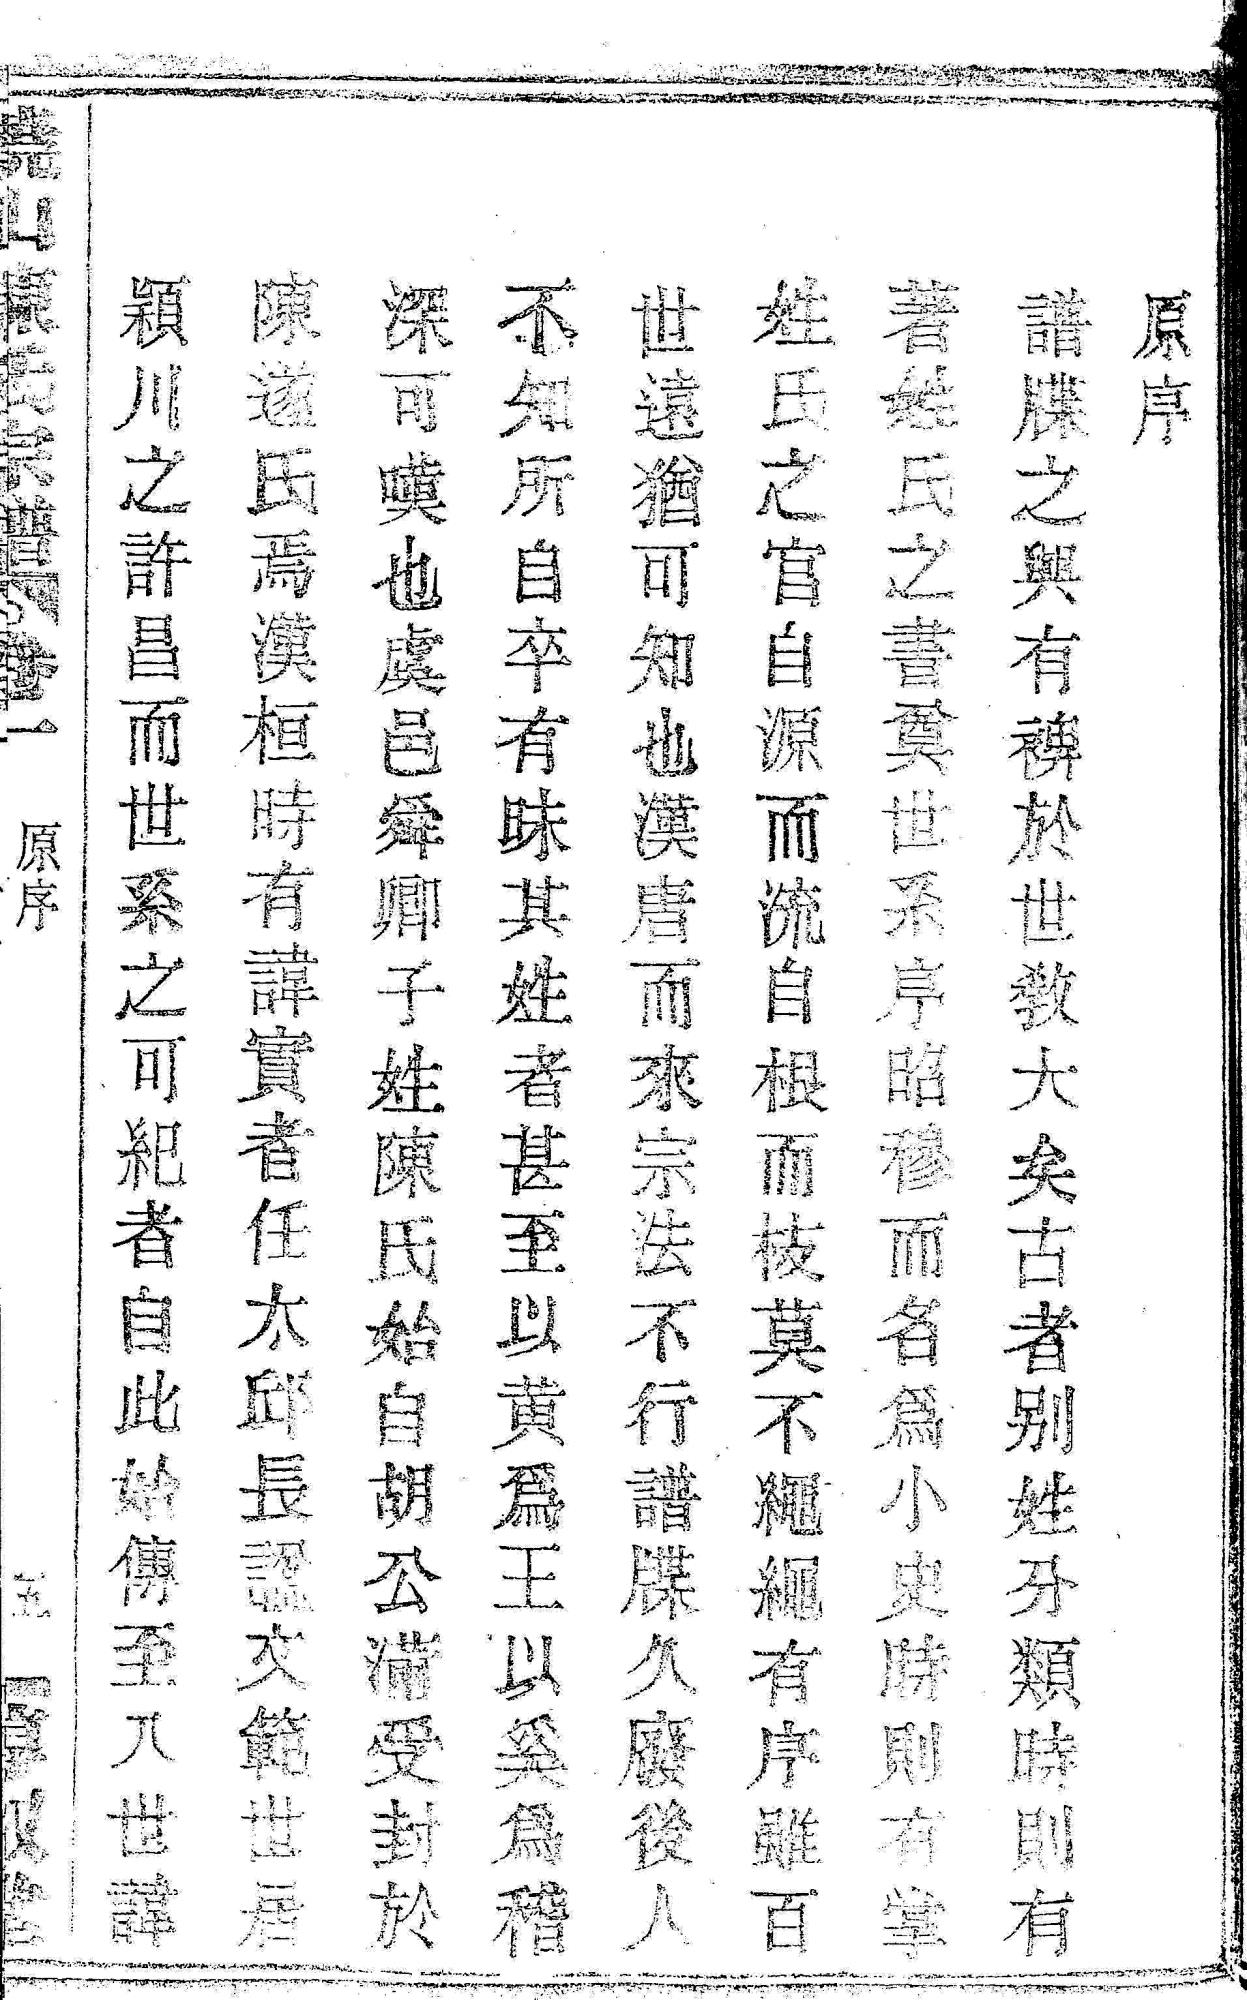 原序
譜牒之興有裨於世教大矣古者别姓分類時則有
著姓氏之書奠世系序昭穆而名爲小史時則有掌
姓氏之官自源而流自根而枝莫不繩繩有序雖百
世遠猶可知也漢唐而來宗法不行譜牒久廢後人
不知所自卒有昧其姓者甚至以黄爲王以奚爲稽
深可嘆也虞邑舜卿子姓陳氏始自胡公滿受封於
陳遂氏焉漢桓時有諱實者任太邱長諡文範世居
穎川之許昌而世系之可紀者自此始傳至八世諱
山陳氏宗譜 卷一 原序 五